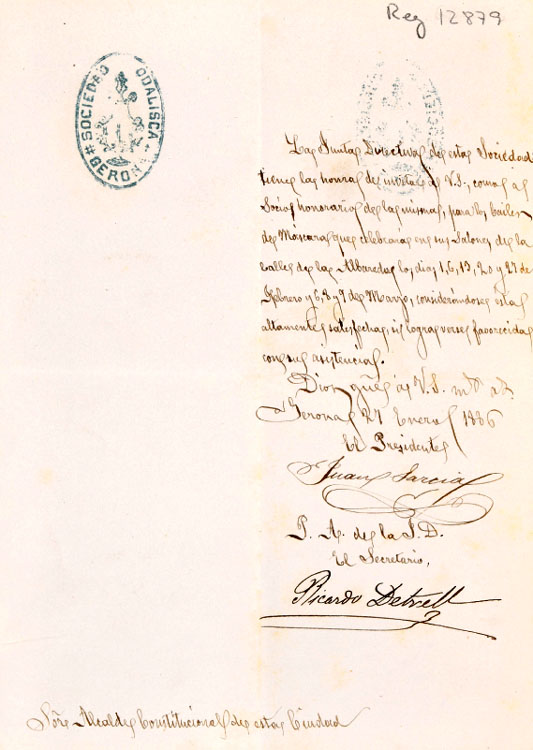 Reg 12879
SOCIEDAD ODALISCA
GERONA
La Junta Directiva de esta Sociedad
tiene la honra de invitar á V.S., como á
Socio honorario de la misma, para los bailes
de Máscara que celebrará en sus Salones de la
calle de la Albareda los dias 1, 6, 13, 20 y 27 de
Febrero y 6, 8 y 9 de Marzo, considerándose esta
altamente satisfecha si logra verse favorecida
con su asistencia.
Dios gue á V.S. ms as.
Gerona 27 Enero 1886
El Presidente
Juan Garcia
P. A. de la J. D.
El Secretario,
Ricardo
Sor Alcalde Constitucional de esta Ciudad